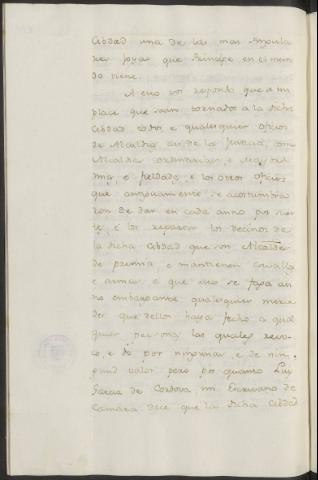 Cibdad una de las mas singula
res joyas que Principe en el mun
do tiene.
A esto vos respondo que a mi
place que sean tornados a la dicha
Cibdad todos, e qualesquier oficios
de Alcaldias, asi de la Justicia, como
Alcaldias ordinarias, e
e los otros oficios
que antiguamente se acostumbra
ron de dar en cada anno por suer
te, e los reparen los vecinos de
la dicha Cibdad que son
de premia, e mantienen cavallos
e armas, e que esto se faga asi
no embargante qualesquier merce
des que dellos haya fecho a qual
quier persona, las quales revo
co, e do por ningunas, e de nin
gund valor pero por quanto Luis
Garcia de Cordova mi Escrivano de
Camara dice que la dicha Cibdad